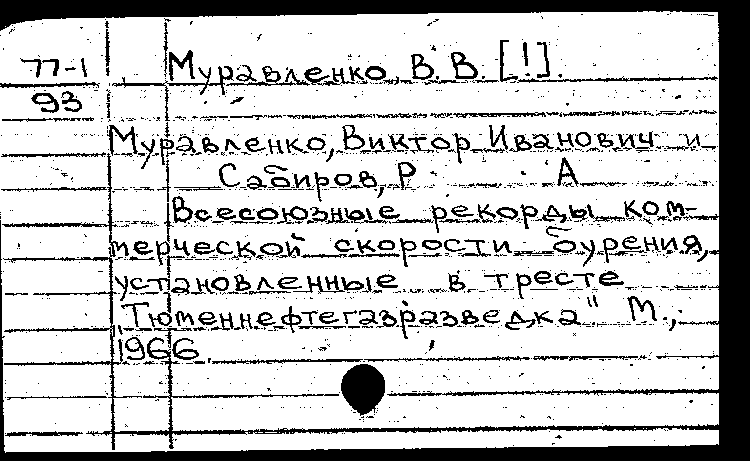 77-1
93
Муравленко, В. В. [!].
Муравленко, Виктор Иванович и
Сабиров, Р. А
Всесоюзные рекорды ком-
мерческой скорости бурения,
установленные в тресте
„Тюменнефтегазразведка" М.,
1966.